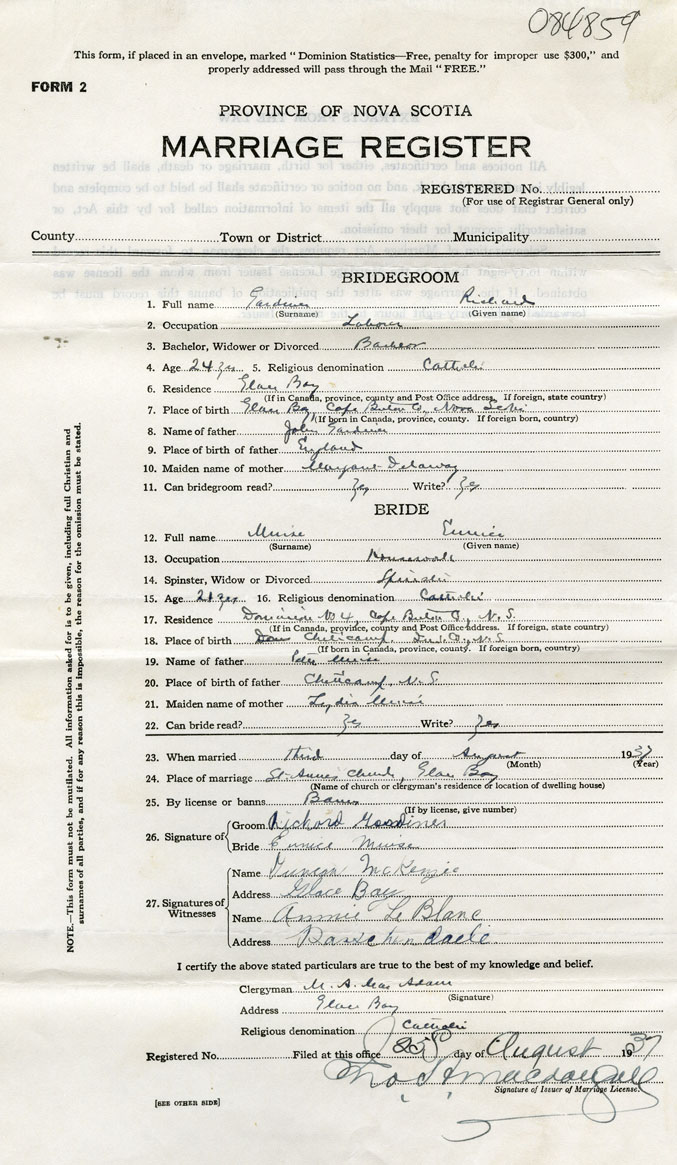 084859
This form, if placed in an envelope, marked "Dominion Statistics—Free, penalty for improper use $300," and
properly addressed will pass through the Mail "FREE."
FORM 2
PROVINCE OF NOVA SCOTIA
MARRIAGE REGISTER
REGISTERED No.
(For use of Registrar General only)
County Town or District Municipality
BRIDEGROOM
1. Full name Gardiner Richard
(Surname) (Given name)
2. Occupation Labourer
3. Bachelor, Widower or Divorced Bachelor
4. Age 24 yrs 5. Religious denomination Catholic
6. Residence Glace Bay
(If in Canada, province, county and Post Office address. If foreign, state country)
7. Place of birth Glace Bay Cape Breton Co, Nova Scotia
(If born in Canada, province, county. If foreign born, country)
8. Name of father John Gardiner
9. Place of birth of father England
10. Maiden name of mother Margaret
11. Can bridegroom read? Yes Write? Yes
BRIDE
12. Full name Muise Eunice
(Surname) (Given name)
13. Occupation Housework
14. Spinster, Widow or Divorced Spinster
15. Age 21 yrs 16. Religious denomination Catholic
17. Residence Dominion No 4, Cape Breton Co, N.S.
(If in Canada, province, county and Post Office address. If foreign, state country)
18. Place of birth Cheticamp, Inv. Co, N.S.
(If born in Canada, province, county. If foreign born, country)
19. Name of father Peter Muise
20. Place of birth of father Cheticamp, N.S.
21. Maiden name of mother Lydia Muise
22. Can bride read? Yes Write? Yes
23. When married third day of August 1937
(Month) (Year)
24. Place of marriage St. Anne's Church, Glace Bay
(Name of church or clergyman's residence or location of dwelling house)
25. By license or banns Banns
(If by license, give number)
26. Signature of
Groom Richard Gardiner
Bride Eunice Muise
27. Signatures of Witnesses
Name Duncan McKenzie
Address Glace Bay
Name Annie Le Blanc
Address Passchendaele
I certify the above stated particulars are true to the best of my knowledge and belief.
Clergyman M. A. MacAdam
(Signature)
Address Glace Bay
Religious denomination Catholic
Registered No. Filed at this office 25th day of August 1937
Signature of Issuer of Marriage License.
[SEE OTHER SIDE]
NOTE.—This form must not be mutilated. All information asked for is to be given, including full Christian and
surnames of all parties, and if for any reason this is impossible, the reason for the omission must be stated.